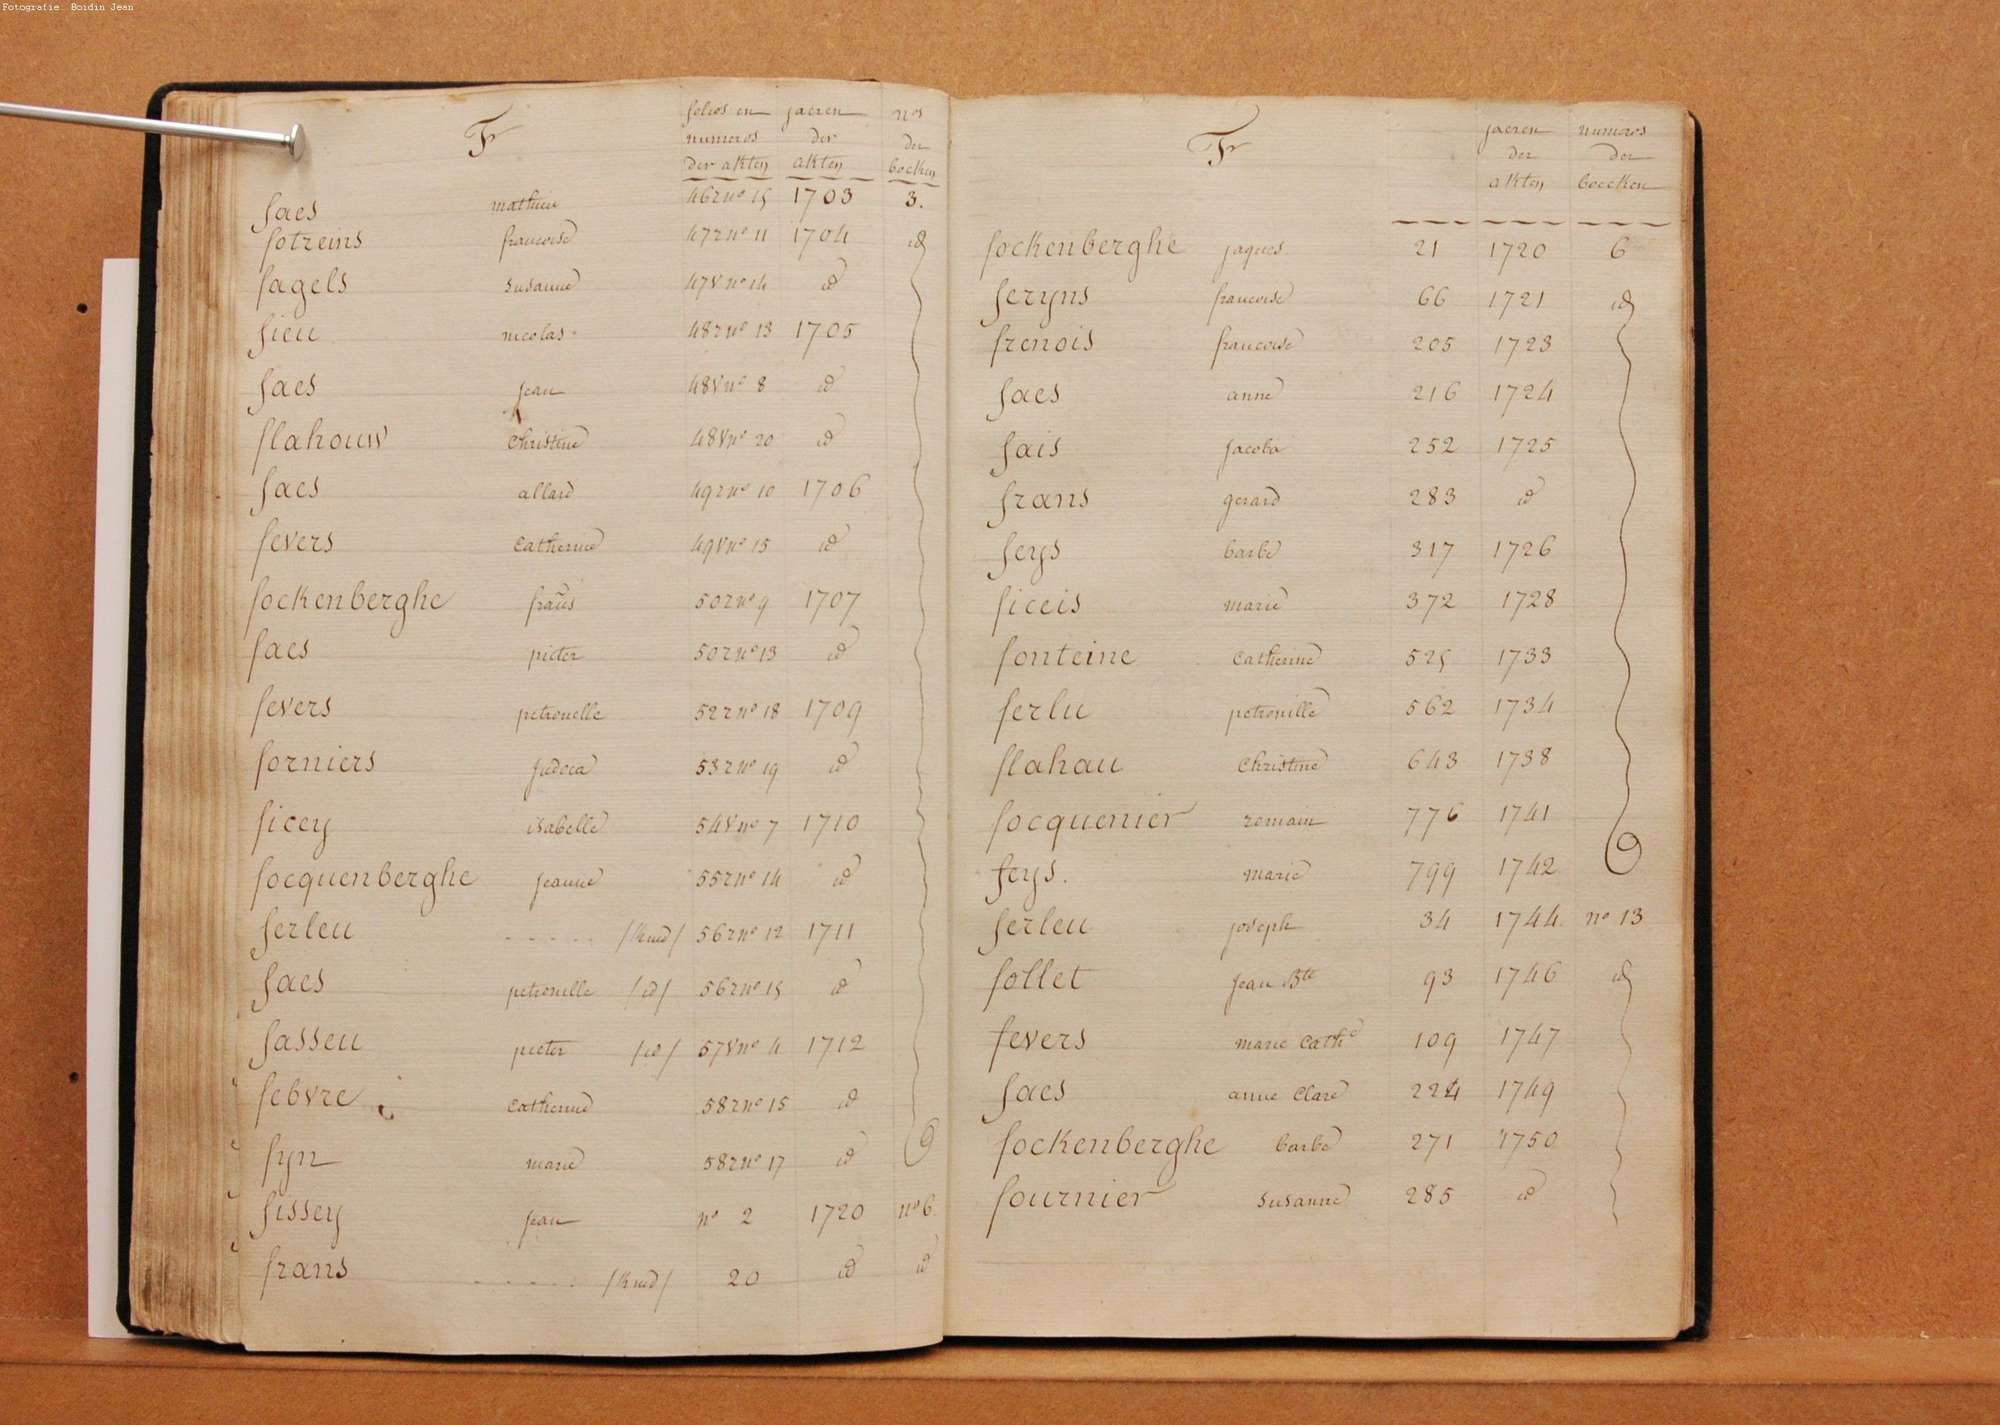 Fotografie Boidin Jean
F
folios en numeros der akten
jaeren der akten
nos der boecken
faes mathieu 46r no 15 1703 3.
fotreins francoise 47r no 11 1704 id
fagels susanne 47v no 14 id
fieu nicolas 48r no 13 1705
faes jean 48v no 8 id
flahouw Christine 48v no 20 id
faes allard 49r no 10 1706
fevers Catherine 49v no 15 id
fockenberghe frans 50r no 9 1707
faes pieter 50r no 13 id
fevers petronelle 52r no 18 1709
forniers judoca 53r no 19 id
ficey isabelle 54v no 7 1710
focquenberghe jeanne 55r no 14 id
ferleu ..... /kind/ 56r no 12 1711
faes petronille /id/ 56r no 15 id
fasseu pieter /id/ 57v no 4 1712
febvre Catherine 58r no 15 id
fyn marie 58r no 17 id
fissey jean no 2 1720 no 6
frans ..... /kind/ 20 id id
F
jaeren der akten
numeros der boecken
fockenberghe jaques 21 1720 6
feryns francoise 66 1721 id
frenois francoise 205 1723
faes anne 216 1724
fais jacoba 252 1725
frans gerard 283 id
feys barbe 317 1726
ficeis marie 372 1728
fonteine Catherine 525 1733
ferlu petronille 562 1734
flahau Christine 643 1738
focquenier romain 776 1741
feys. marie 799 1742
ferleu joseph 34 1744 no 13
follet jean Bte 93 1746 id
fevers marie Cathe 109 1747
faes anne Clare 224 1749
fockenberghe barbe 271 1750
fournier susanne 285 id